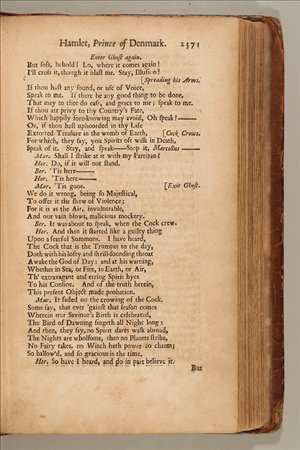 Hamlet, Prince of Denmark. 2371
Enter Ghost again.
But soft, behold! Lo, where it comes again!
I'll cross it, though it blast me. Stay, Illusion!
[Spreading his Arms.
If thou hast any sound, or use of Voice,
Speak to me. If there be any good thing to be done,
That may to thee do ease, and grace to me; speak to me.
If thou art privy to thy Country's Fate,
Which happily fore-knowing may avoid, Oh speak!——
Or, if thou hast uphoorded in thy Life
Extorted Treasure in the womb of Earth, [Cock Crows.
For which, they say, you Spirits oft walk in Death,
Speak of it. Stay, and speak——Stop it, Marcellus——
Mar. Shall I strike at it with my Partizan?
Hor. Do, if it will not stand.
Ber. 'Tis here——
Hor. 'Tis here——
Mar. 'Tis gone. [Exit Ghost.
We do it wrong, being so Majestical,
To offer it the shew of Violence;
For it is as the Air, invulnerable,
And our vain blows, malicious mockery.
Ber. It was about to speak, when the Cock crew.
Hor. And then it started like a guilty thing
Upon a fearful Summons. I have heard,
The Cock that is the Trumpet to the day,
Doth with his lofty and shrill-sounding throat
Awake the God of Day: and at his warning,
Whether in Sea, or Fire, in Earth, or Air,
Th' extravagant and erring Spirit hyes
To his Confine. And of the truth herein,
This present Object made probation.
Mar. It faded on the crowing of the Cock.
Some say, that ever 'gainst that season comes
Wherein our Saviour's Birth is celebrated,
The Bird of Dawning singeth all Night long:
And then, they say, no Spirit dares walk abroad,
The Nights are wholsome, then no Planets strike,
No Fairy takes, no Witch hath power to charm;
So hallow'd, and so gracious is the time.
Hor. So have I heard, and do in part believe it.
But